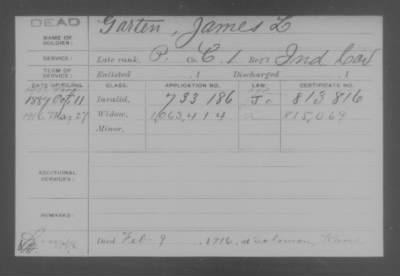 DEAD
NAME OF SOLDIER: Garten, James L
SERVICE: Late rank, P. Co. C. 1 Reg't Ind Cav
TERM OF SERVICE: Enlisted , 1 Discharged , 1
DATE OF FILING. CLASS. APPLICATION NO. LAW. CERTIFICATE NO.
1889 Oct. 11 Invalid, 733 186 813 816
1916 Mar 27 Widow, 1,063,414 815,069
Minor,
ADDITIONAL SERVICES:
REMARKS:
Died Feb. 9, 1916, at Solomon, Kans